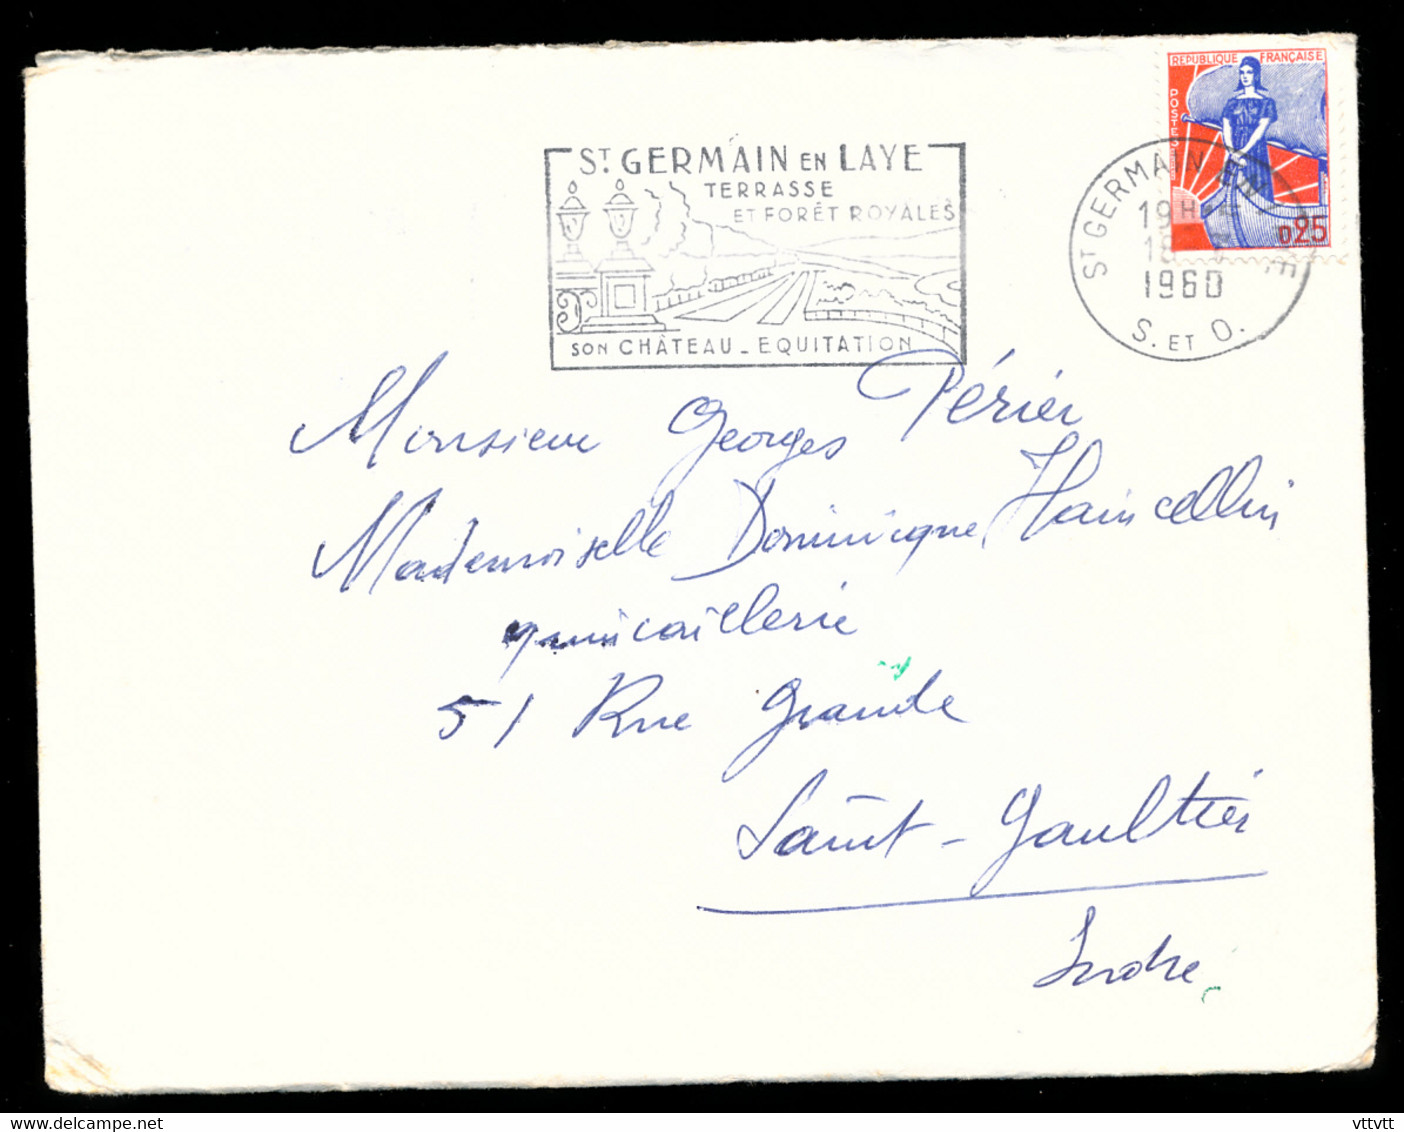 RÉPUBLIQUE FRANÇAISE
POSTES
0,25
ST GERMAIN EN LAYE
TERRASSE
ET FORÊT ROYALES
SON CHÂTEAU - EQUITATION
ST GERMAIN EN
19H
18
1960
S. ET O.
Monsieur Georges Périer
Mademoiselle Dominique Haincellin
quincaillerie
51 Rue Grande
Saint-Gaultier
Indre
vttvtt